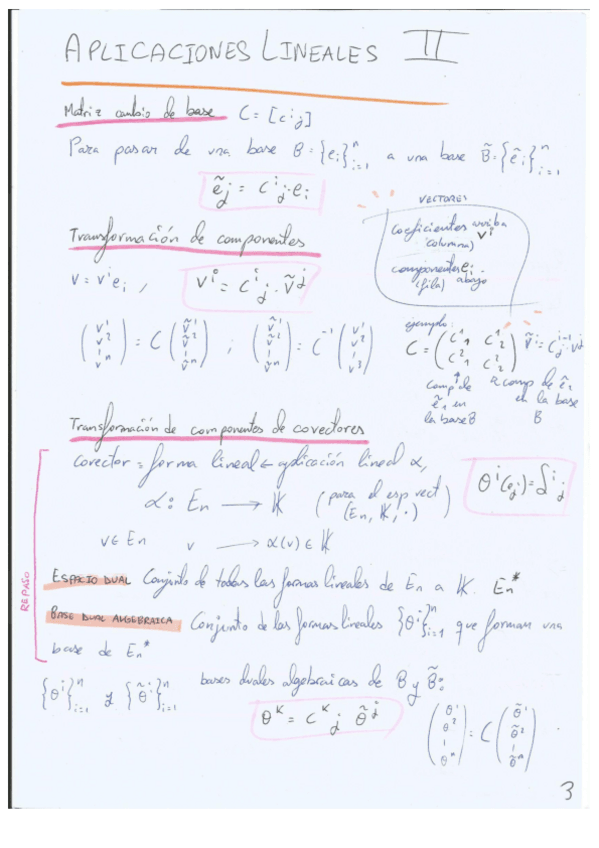 APLICACIONES LINEALES II
Matriz cambio de base C = [cⁱⱼ]
Para pasar de una base B = {eᵢ}ⁿᵢ₌₁ a una base B̃ = {ẽᵢ}ⁿᵢ₌₁
ẽⱼ = Cⁱⱼ · eᵢ
VECTORES
coeficientes arriba vⁱ
(columna)
componentes eᵢ
(fila) abajo
Transformación de componentes
v = vⁱeᵢ , vⁱ = Cⁱⱼ · ṽʲ
(v¹ v² ⁞ vⁿ) = C (ṽ¹ ṽ² ⁞ ṽⁿ) ; (ṽ¹ ṽ² ⁞ ṽⁿ) = C⁻¹ (v¹ v² ⁞ v³)
ejemplo:
C = (C¹₁ C¹₂ C²₁ C²₂) ṽⁱ = Cⱼⁱ⁻¹ · vʲ
comp de ẽ₁ en la base B
comp de ẽ₂ en la base B
Transformación de componentes de covectores
covector = forma lineal ← aplicación lineal α,
θⁱ(eⱼ) = δⁱⱼ
α : Eₙ → 𝕂 (para el esp vect (Eₙ, 𝕂, ·))
v ∈ Eₙ v → α(v) ∈ 𝕂
REPASO
ESPACIO DUAL Conjunto de todas las formas lineales de Eₙ a 𝕂. Eₙ*
BASE DUAL ALGEBRAICA Conjunto de las formas lineales {θⁱ}ⁿᵢ₌₁ que forman una
base de Eₙ*
{θⁱ}ⁿᵢ₌₁ y {θ̃ⁱ}ⁿᵢ₌₁ bases duales algebraicas de B y B̃:
θᴷ = Cᴷⱼ θ̃ʲ
(θ¹ θ² ⁞ θⁿ) = C (θ̃¹ θ̃² ⁞ θ̃ⁿ)
3